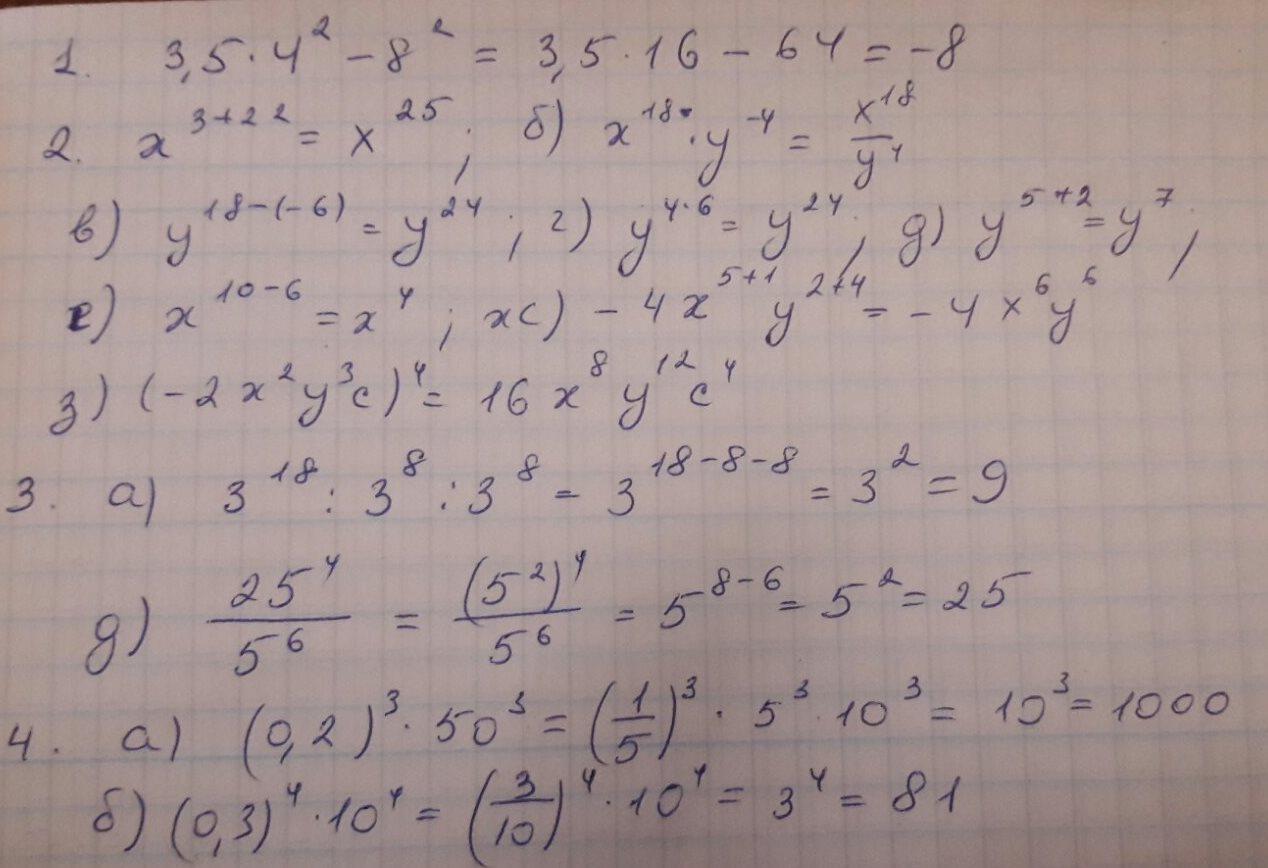 1. 3,5·4² - 8² = 3,5·16 - 64 = -8
2. x³⁺²² = x²⁵; б) x¹⁸·y⁻⁴ = x¹⁸/y⁴
в) y¹⁸⁻⁽⁻⁶⁾ = y²⁴; г) y⁴·⁶ = y²⁴; д) y⁵⁺² = y⁷;
е) x¹⁰⁻⁶ = x⁴; ж) -4x⁵⁺¹y²⁺⁴ = -4x⁶y⁶
з) (-2x²y³c)⁴ = 16x⁸y¹²c⁴
3. а) 3¹⁸ : 3⁸ : 3⁸ = 3¹⁸⁻⁸⁻⁸ = 3² = 9
д) 25⁴/5⁶ = (5²)⁴/5⁶ = 5⁸⁻⁶ = 5² = 25
4. а) (0,2)³·50³ = (1/5)³·5³·10³ = 10³ = 1000
б) (0,3)⁴·10⁴ = (3/10)⁴·10⁴ = 3⁴ = 81